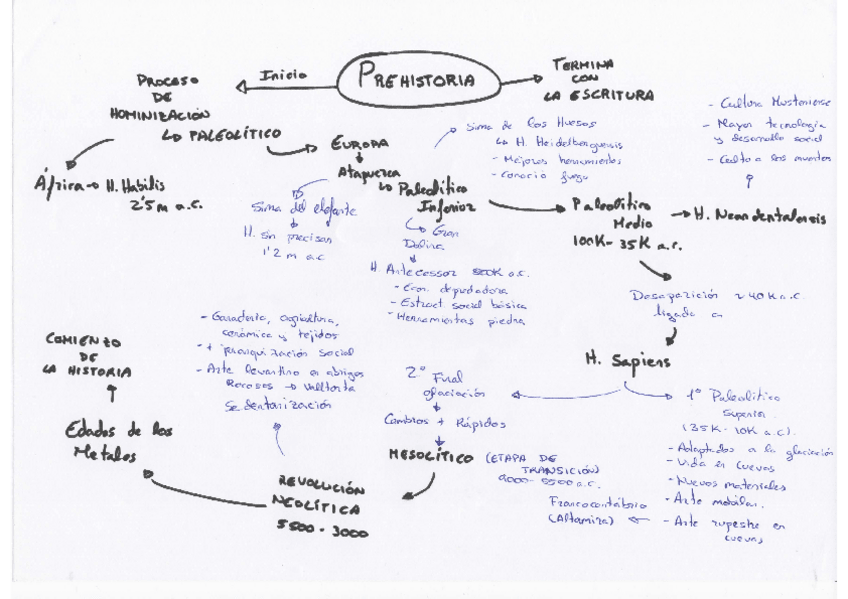 PREHISTORIA
Inicio
PROCESO
DE
HOMINIZACIÓN
↳ PALEOLÍTICO
TERMINA
CON
LA ESCRITURA
África → H. Habilis
2'5 m a.C.
EUROPA
Atapuerca
↳ Paleolítico
Inferior
Sima del elefante
H. sin precisar
1'2 m a.C
Sima de los Huesos
↳ H. Heidelbergensis
- Mejores herramientas
- Conoció fuego
Gran
Dolina
H. Antecessor 800K a.C.
- Econ. depredadora
- Estruct social básica
- Herramientas piedra
Paleolítico
Medio
100K - 35K a.C.
→ H. Neandentalensis
- Cultura Musteriense
- Mayor tecnología
y desarrollo social
- Culto a los muertos
Desaparición ~40K a.C.
ligada a
H. Sapiens
1º Paleolítico
Superior
(35K - 10K a.C).
- Adaptados a la glaciación
- Vida en cuevas
- Nuevos materiales
- Arte mobiliar.
- Arte rupestre en
cuevas
Francocantábrio
(Altamira)
2º Final
glaciación
Cambios + Rápidos
MESOLÍTICO (ETAPA DE
TRANSICIÓN)
9000 - 5500 a.C.
REVOLUCIÓN
NEOLÍTICA
5500 - 3000
- Ganadería, agricultura,
cerámica y tejidos
- + jerarquización social
- Arte levantino en abrigos
Rocosos → Valltorta
Sedentarización
Edades de los
Metales
COMIENZO
DE
LA HISTORIA